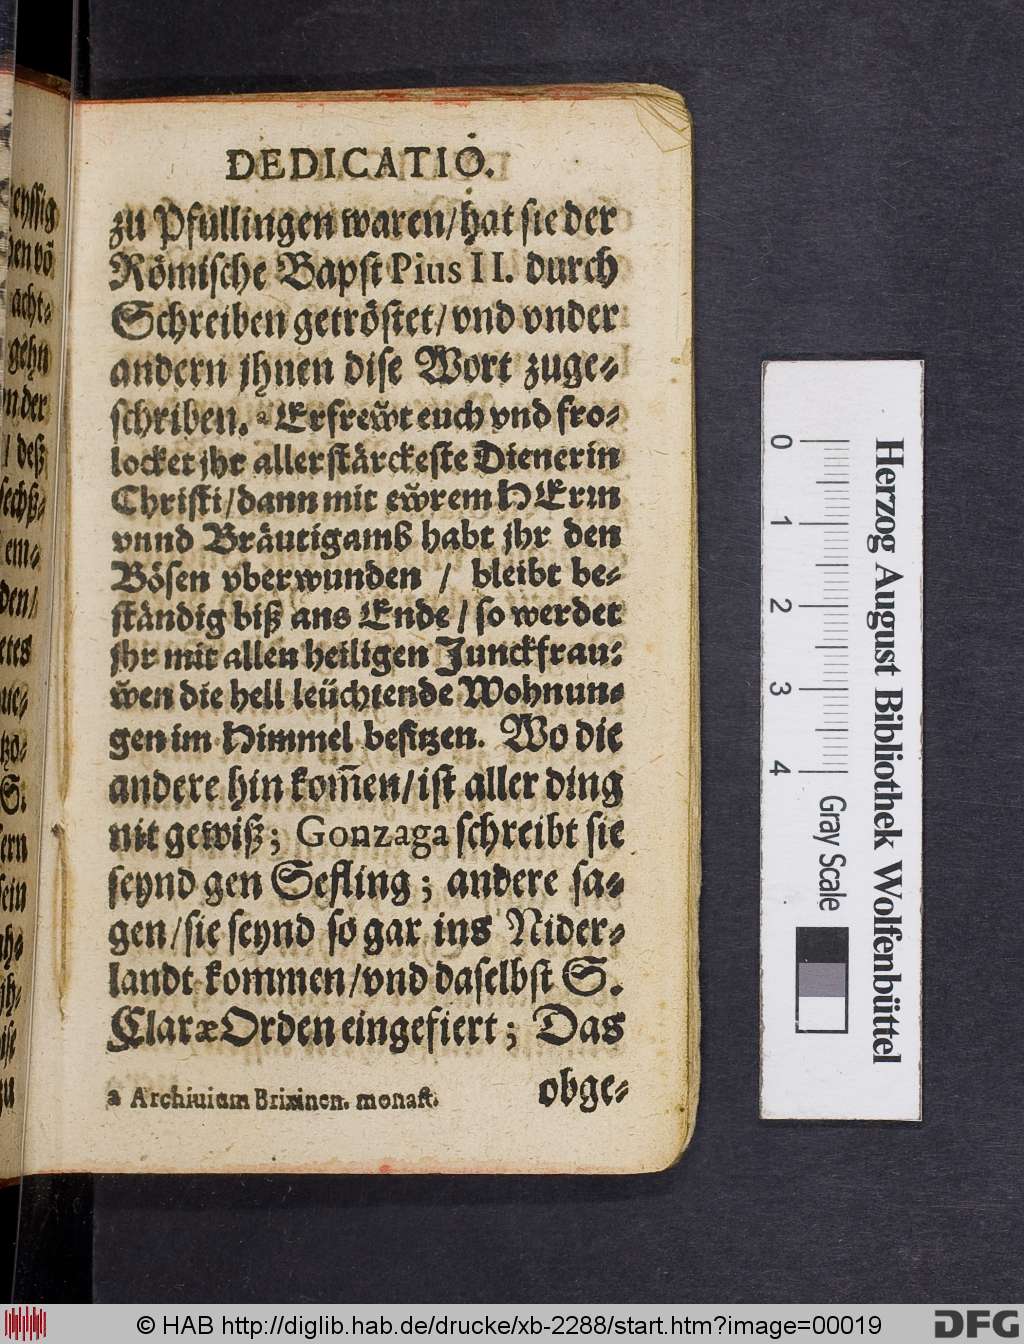 DEDICATIO.
zu Pfullingen waren/hat sie der
Römische Bapst Pius II. durch
Schreiben getröstet/vnd vnder
andern jhnen dise Wort zuge-
schriben. a Erfrewt euch vnd fro-
locket jhr allerstärckeste Dienerin
Christi/dann mit ewrem HErrn
vnnd Bräutigamb habt jhr den
Bösen vberwunden / bleibt be-
ständig biß ans Ende / so werdet
jhr mit allen heiligen Junckfrau-
wen die hell leüchtende Wohnun-
gen im Himmel besitzen. Wo die
andere hin kom̃en/ist aller ding
nit gewiß; Gonzaga schreibt sie
seynd gen Sefling; andere sa-
gen/sie seynd so gar ins Nider-
landt kommen/vnd daselbst S.
Claræ Orden eingefiert; Das
a Archiuium Brixinen. monast.
obge-
eyssig
en võ
acht-
gehn
der
/ deß
sechß-
em-
den/
S.
sein
zu
0 1 2 3 4
Gray Scale
Herzog August Bibliothek Wolfenbüttel
© HAB http://diglib.hab.de/drucke/xb-2288/start.htm?image=00019
DFG